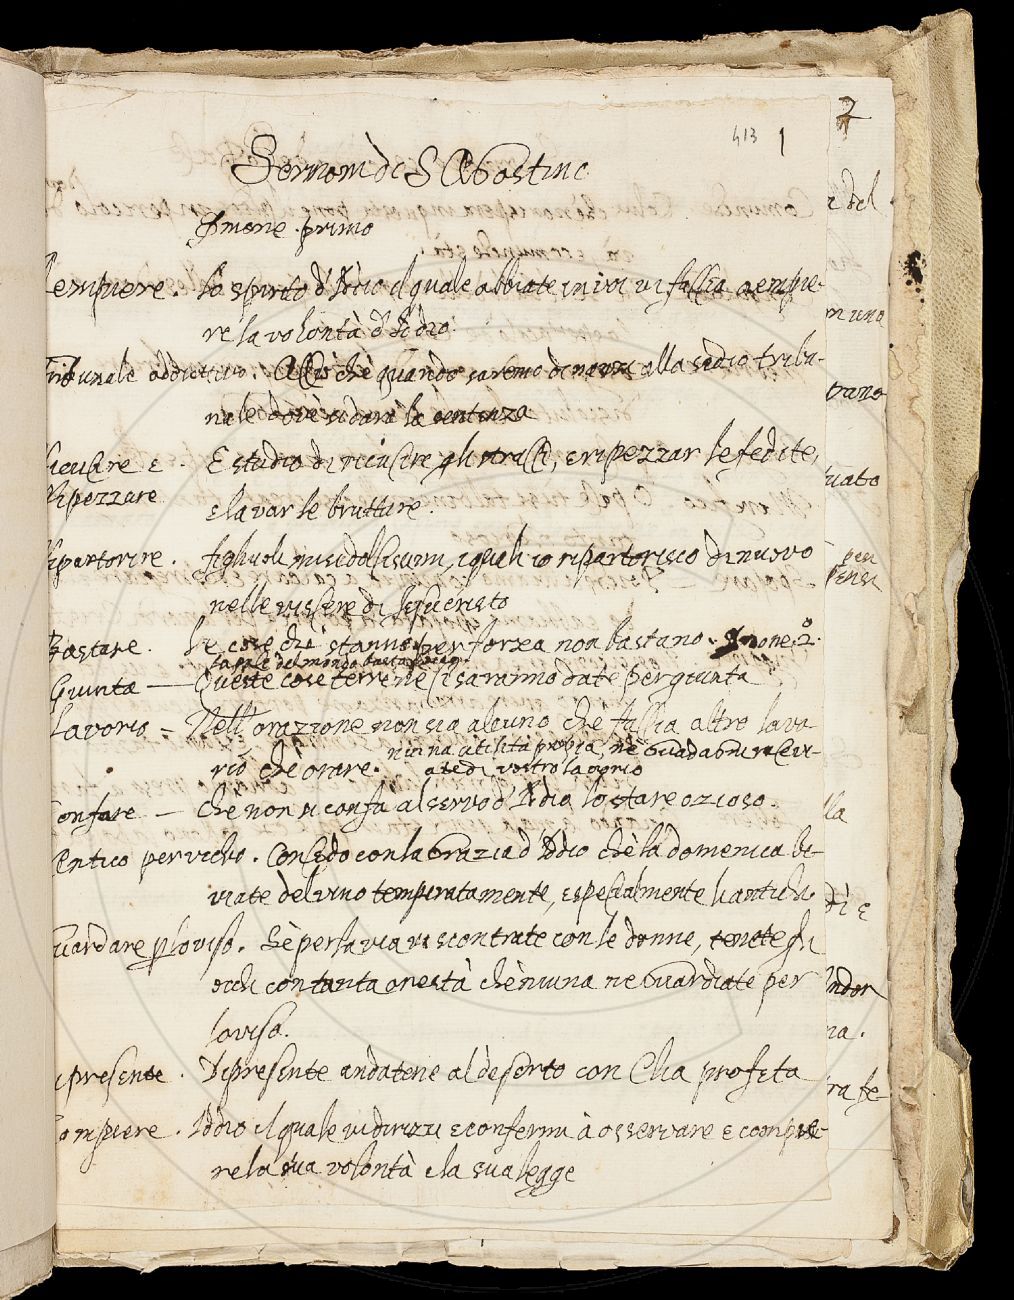 2
413 1
Sermoni di S Agostino
Srmone primo
Rempiere. Lo spirito d'Iddio il quale abbiate in voi vi faccia aempie-
re la volontà d'Iddio.
Tribunale addiettivo. Acciò chè quando saremo dinanzi alla sedia tribu-
nale dove si darà la sentenza
Ricucire E. E studio di ricucire gli stracci, e ripezzar le fedite,
Ripezzare
e lavar le brutture.
Ripartorire. figliuoli miei dolcissimi, i quali io ripartorisco di nuovo
nelle viscere di Jesucristo
Bastare. Le cose che stanno per forza non bastano. Srmone 2°.
La pace del mondo basta poco
Giunta — Queste cose terrene si saranno date per giunta
Lavorio = Nell'orazione non sia alcuno che faccia altro lavo-
rio che orare. niuna utilità propia, nè Guadagnerà
ate di vostro lavorio
Confare — Che non si confà al servo d'Iddio lo stare ozioso.
Entico per vechio. Concedo con la Grazia d'Iddio chè la domenica be-
viate del vino temperatamente, e specialmente li antichi.
Guardare p lo viso. Sè per la via vi scontrate con le donne, tenete gli
ochi con tanta onestà chè niuna ne Guardiate per
lo viso.
Di presente. Di presente andatene al deserto con Elia profeta
Compiere. Iddio il quale vi dirizzi e confermi à osservare e compie-
re la sua volontà e la sua legge